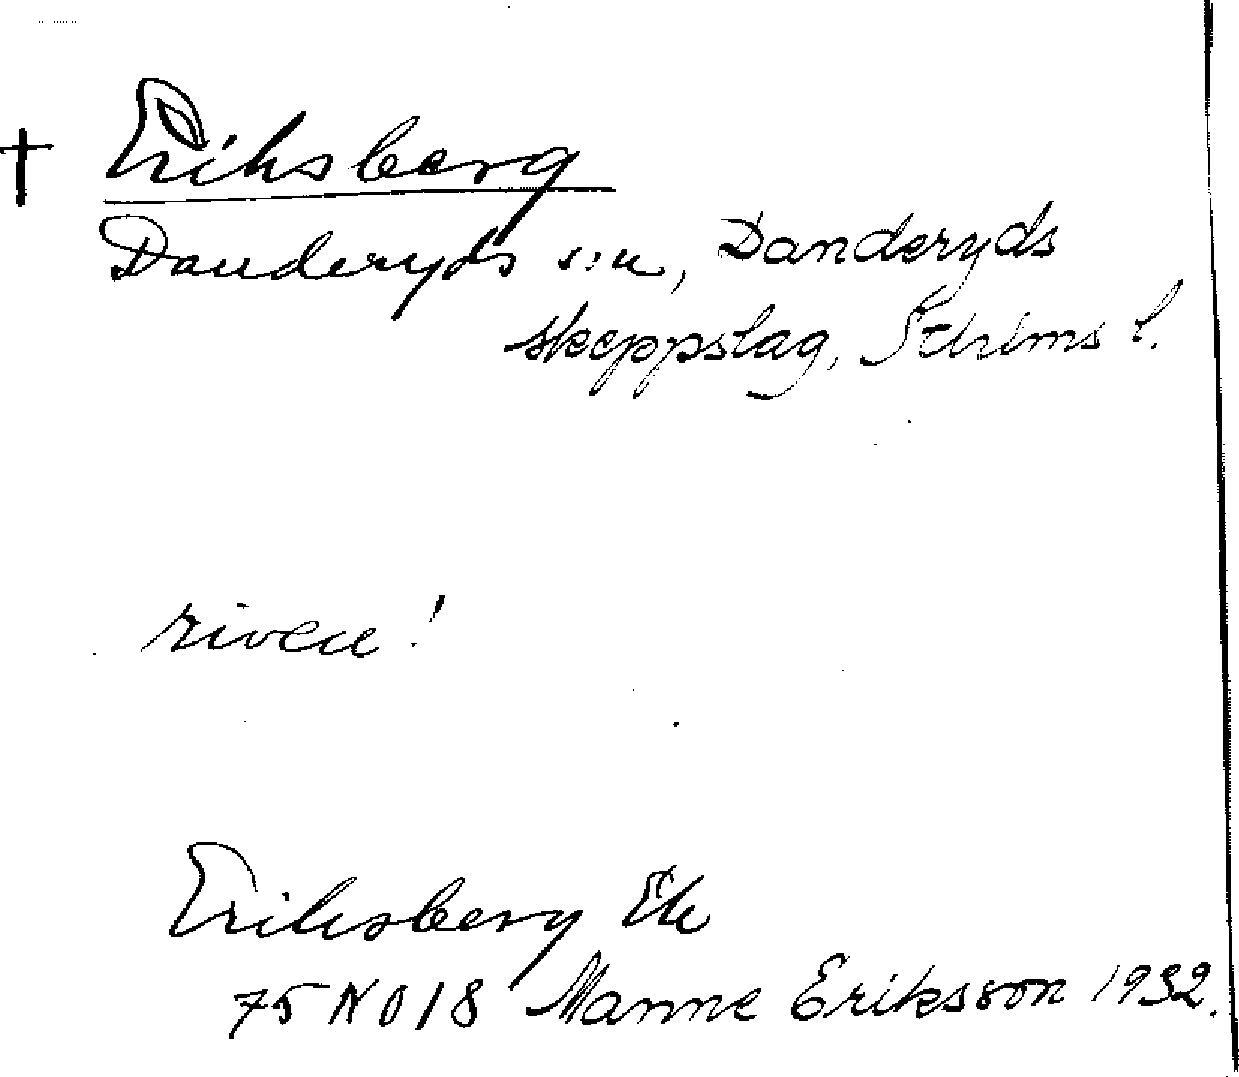 † Eriksberg
Danderyds sn, Danderyds
skeppslag, Sthlms l.
riven!
Eriksberg Ek
75 N O 18 Manne Eriksson 1932.